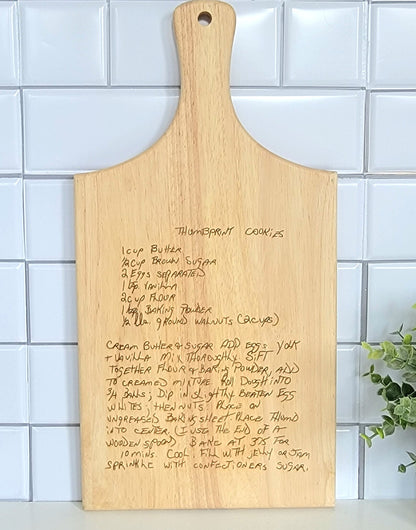 THUMBPRINT COOKIES
1 CUP BUTTER
1/2 CUP BROWN SUGAR
2 EGGS SEPARATED
1 tsp. VANILLA
2 CUP FLOUR
1 tsp. BAKING POWDER
1/2 lb. GROUND WALNUTS (2 CUPS)
CREAM BUTTER & SUGAR ADD EGGS YOLK
+ VANILLA MIX THOROUGHLY SIFT
TOGETHER FLOUR & BAKING POWDER, ADD
TO CREAMED MIXTURE ROLL DOUGH INTO
3/4 BALLS; DIP IN SLIGHTLY BEATEN EGG
WHITES, THEN NUTS. PLACE ON
UNGREASED BAKING SHEET PLACE THUMB
INTO CENTER (I USE THE END OF A
WOODEN SPOON). BAKE AT 375 FOR
10 MINS. COOL. FILL WITH JELLY OR JAM
SPRINKLE WITH CONFECTIONERS SUGAR.